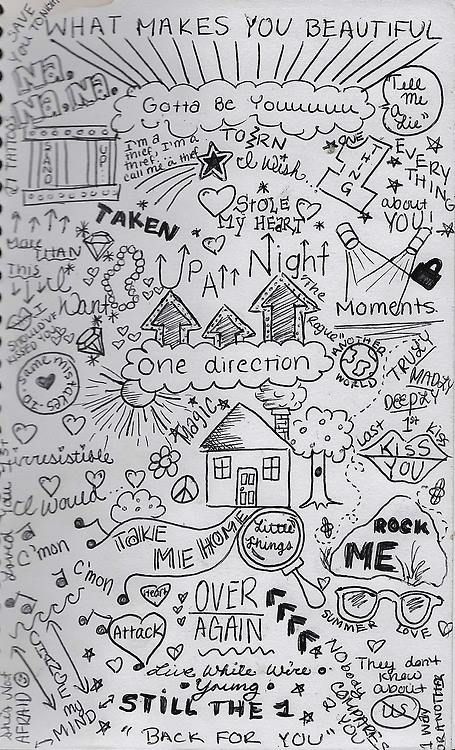 SAVE
YOU TONIGHT
WHAT MAKES YOU BEAUTIFUL
Na.
Na. Na.
Gotta Be Youuuuuu
Tell
Me
A
Lie
STAND
UP
I'm a
thief, I'm a
thief.
call me a thief
TORN
I Wish.
ONE
THING
EVERY
THING
about
YOU!
STOLE
MY HEART
TAKEN
More
THAN
This
UP All Night
I
Want
The
League
I
SHOULD'VE
KISSED YOU
Moments
one direction
ANOTHER
WORLD
same mistakes
TRULY
MADLY
DEEPLY
Magic
1st
Last
Kiss
KISS
YOU
irresistible
I Would
Loved You 1st
TAKE
ME HOME
Little
Things
ROCK
ME
C'mon
C'mon
Heart
Attack
OVER
AGAIN
SUMMER
LOVE
She's Not
AFRAID
my
MIND
Live While We're
Young
Nobody
COMPARES
2 YOU
They don't
know
about
US
STILL THE 1
"BACK FOR YOU"
1 WAY
OR ANOTHER